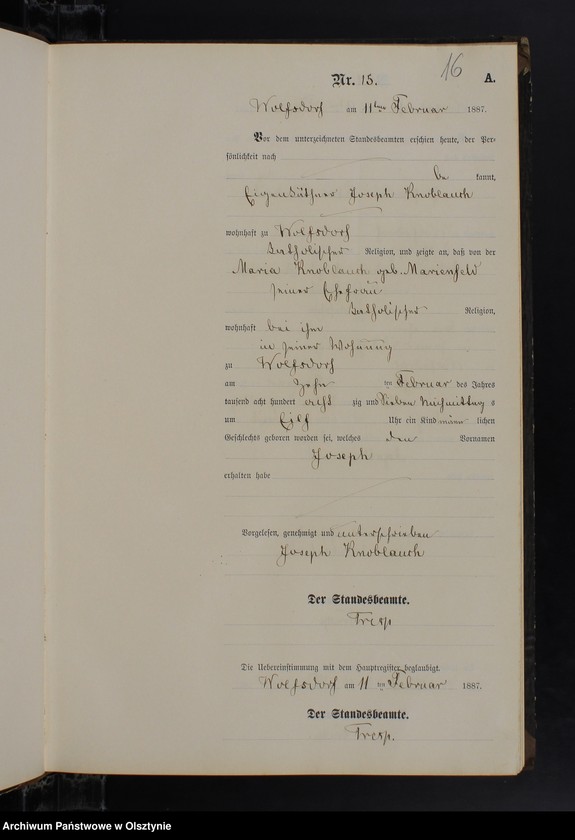 16
Nr. 15. A.
Wolfsdorf am 11ten Februar 1887.
Vor dem unterzeichneten Standesbeamten erschien heute, der Per-
sönlichkeit nach
be kannt,
Eigenkäthner Joseph Knoblauch
wohnhaft zu Wolfsdorf
katholischer Religion, und zeigte an, daß von der
Maria Knoblauch geb. Marienfeld
seiner Ehefrau
katholischer Religion,
wohnhaft bei ihm
in seiner Wohnung
zu Wolfsdorf
am zehn ten Februar des Jahres
tausend acht hundert acht zig und sieben Nachmittag s
um Eilf Uhr ein Kind männ lichen
Geschlechts geboren worden sei, welches den Vornamen
Joseph
erhalten habe
Vorgelesen, genehmigt und unterschrieben
Joseph Knoblauch
Der Standesbeamte.
Tresp.
Die Uebereinstimmung mit dem Hauptregister beglaubigt.
Wolfsdorf am 11 ten Februar 1887.
Der Standesbeamte.
Tresp.
Archiwum Państwowe w Olsztynie